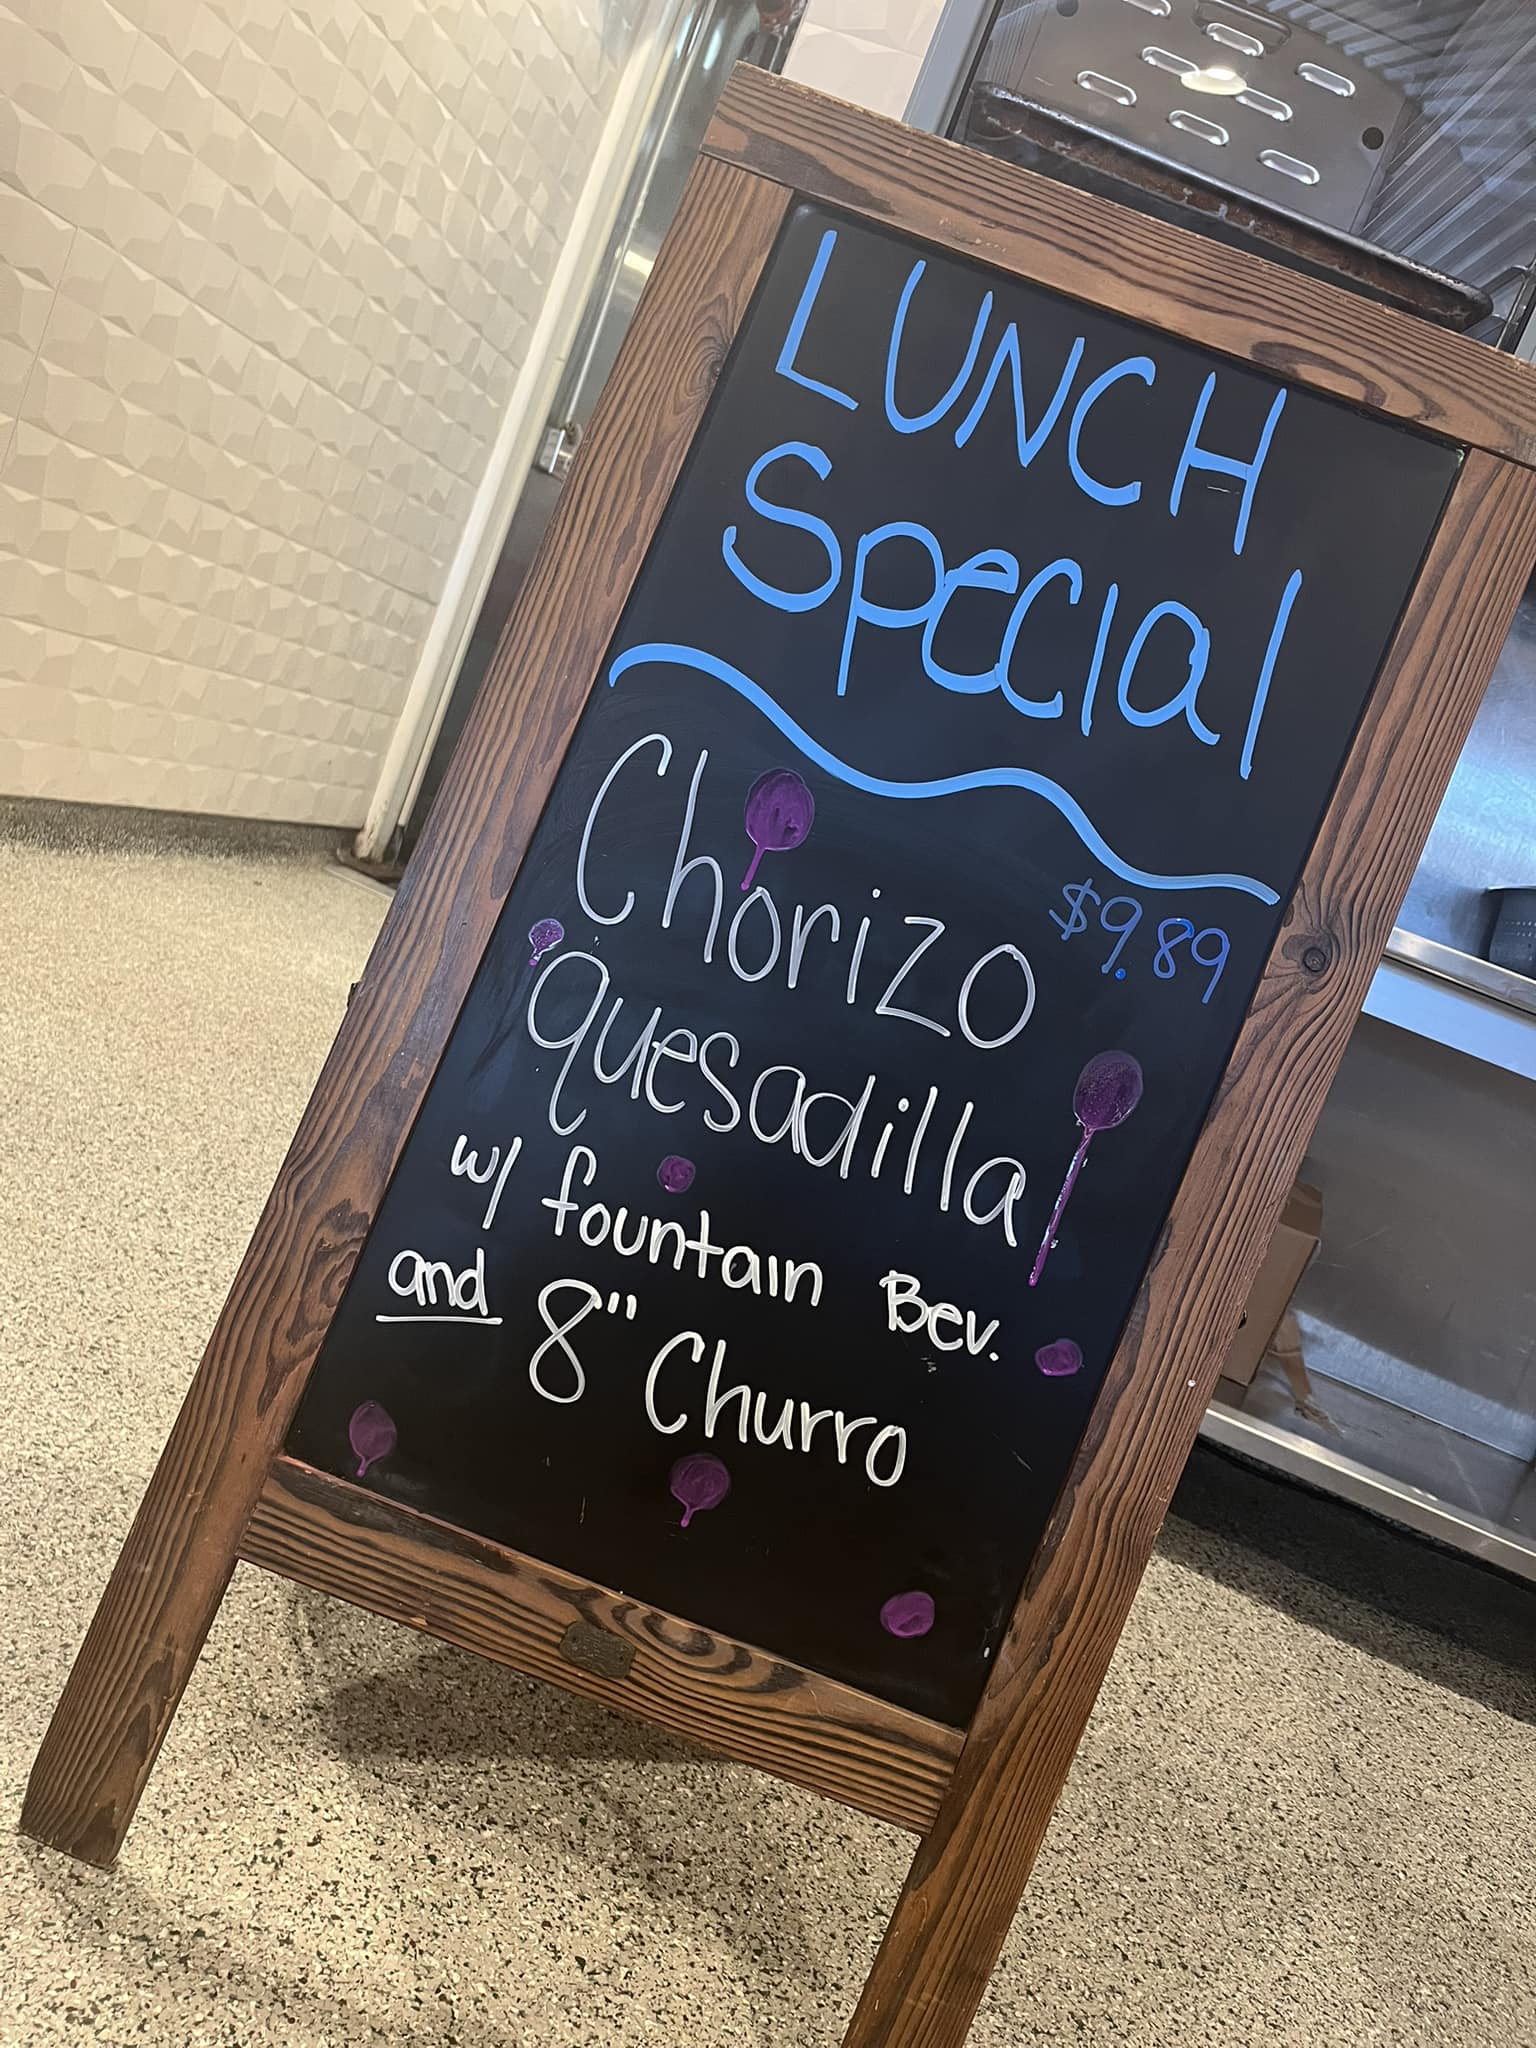 LUNCH
Special
Chorizo $9.89
quesadilla
w/ fountain Bev.
and 8" Churro